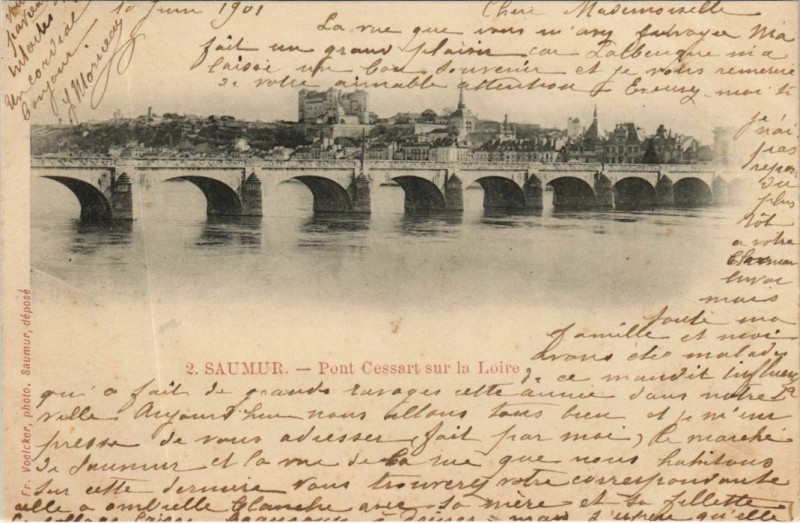 10 Juin 1901 Chère Mademoiselle
La vue que vous m'avez envoyée m'a
fait un grand plaisir car Dalbengue m'a
laissé un bon souvenir et je vous remercie
de votre aimable attention Excusez-moi si
je
n'ai
pas
repon
du
plus
tôt
a votre
envoi
mais
toute ma
famille et moi
avons été malades
2. SAUMUR. — Pont Cessart sur la Loire
de ce maudit Influenza
qui a fait de grands ravages cette année dans notre
ville Aujourd'hui nous allons tous bien et je m'em
presse de vous adresser (fait par moi) le marché
de Saumur et la vue de la rue que nous habitons
Sur cette dernière vous trouverez votre correspondante
elle a ombrelle blanche avec sa mère et sa fillette
Un cordial
bonjour
Fr. Voelcker, photo. Saumur, déposé